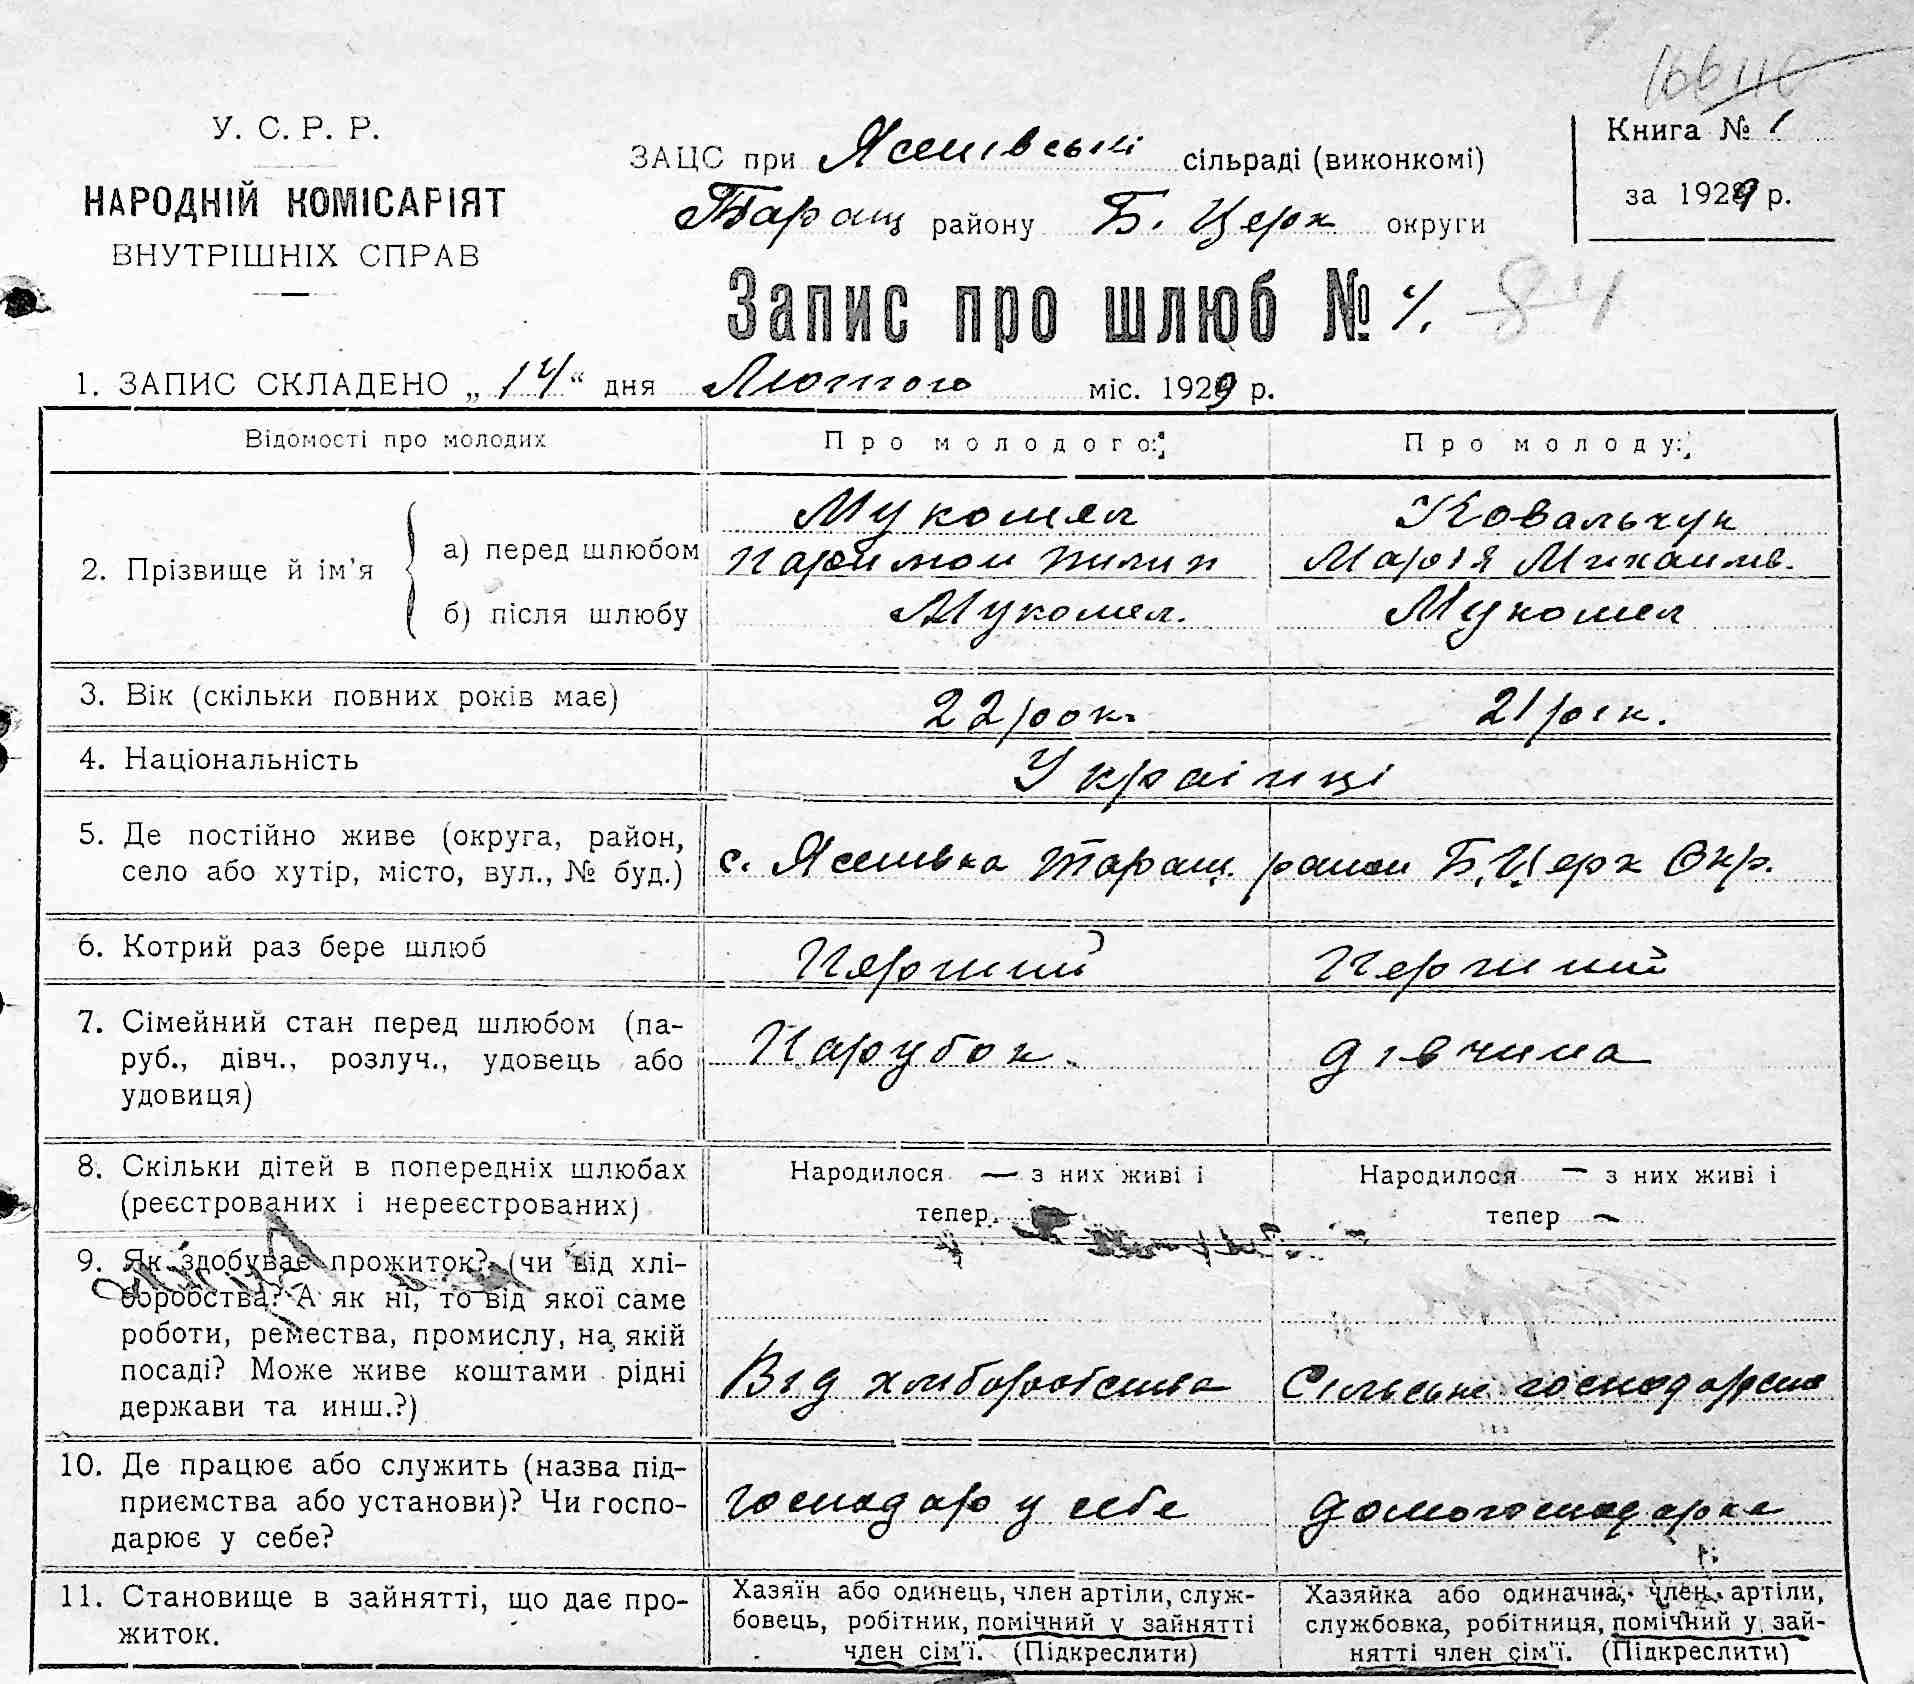 У. С. Р. Р.
НАРОДНІЙ КОМІСАРІЯТ
ВНУТРІШНІХ СПРАВ
ЗАЦС при Ясенівські сільраді (виконкомі)
Таращ району Б. Церк округи
Книга № 1
за 1929 р.
Запис про шлюб № 4. 84
1. ЗАПИС СКЛАДЕНО „ 14 “ дня Лютого міс. 1929 р.
Відомості про молодих
Про молодого:
Про молоду:
2. Прізвище й ім’я
а) перед шлюбом
Мукомел
Ковальчук
Пилип
Марія Михаилів.
б) після шлюбу
Мукомел.
Мукомел
3. Вік (скільки повних років має)
22 рок.
21 рік.
4. Національність
Украінці
5. Де постійно живе (округа, район,
село або хутір, місто, вул., № буд.)
с. Ясенівка Таращ. район Б. Церк Окр.
6. Котрий раз бере шлюб
Перший
Перший
7. Сімейний стан перед шлюбом (па-
руб., дівч., розлуч., удовець або
удовиця)
Парубок.
дівчина
8. Скільки дітей в попередніх шлюбах
(реєстрованих і нереєстрованих)
Народилося — з них живі і
тепер
Народилося — з них живі і
тепер —
9. Як здобуває прожиток? (чи від хлі-
боробства? А як ні, то від якої саме
роботи, ремества, промислу, на якій
посаді? Може живе коштами рідні
держави та инш.?)
Від хліборобства
Сільське господарство
10. Де працює або служить (назва під-
приємства або установи)? Чи госпо-
дарює у себе?
господар у себе
домогосподарка
11. Становище в зайнятті, що дає про-
житок.
Хазяїн або одинець, член артіли, служ-
бовець, робітник, помічний у зайнятті
член сім’ї. (Підкреслити)
Хазяйка або одиначна, член артіли,
службовка, робітниця, помічний у зай-
нятті член сім’ї. (Підкреслити)